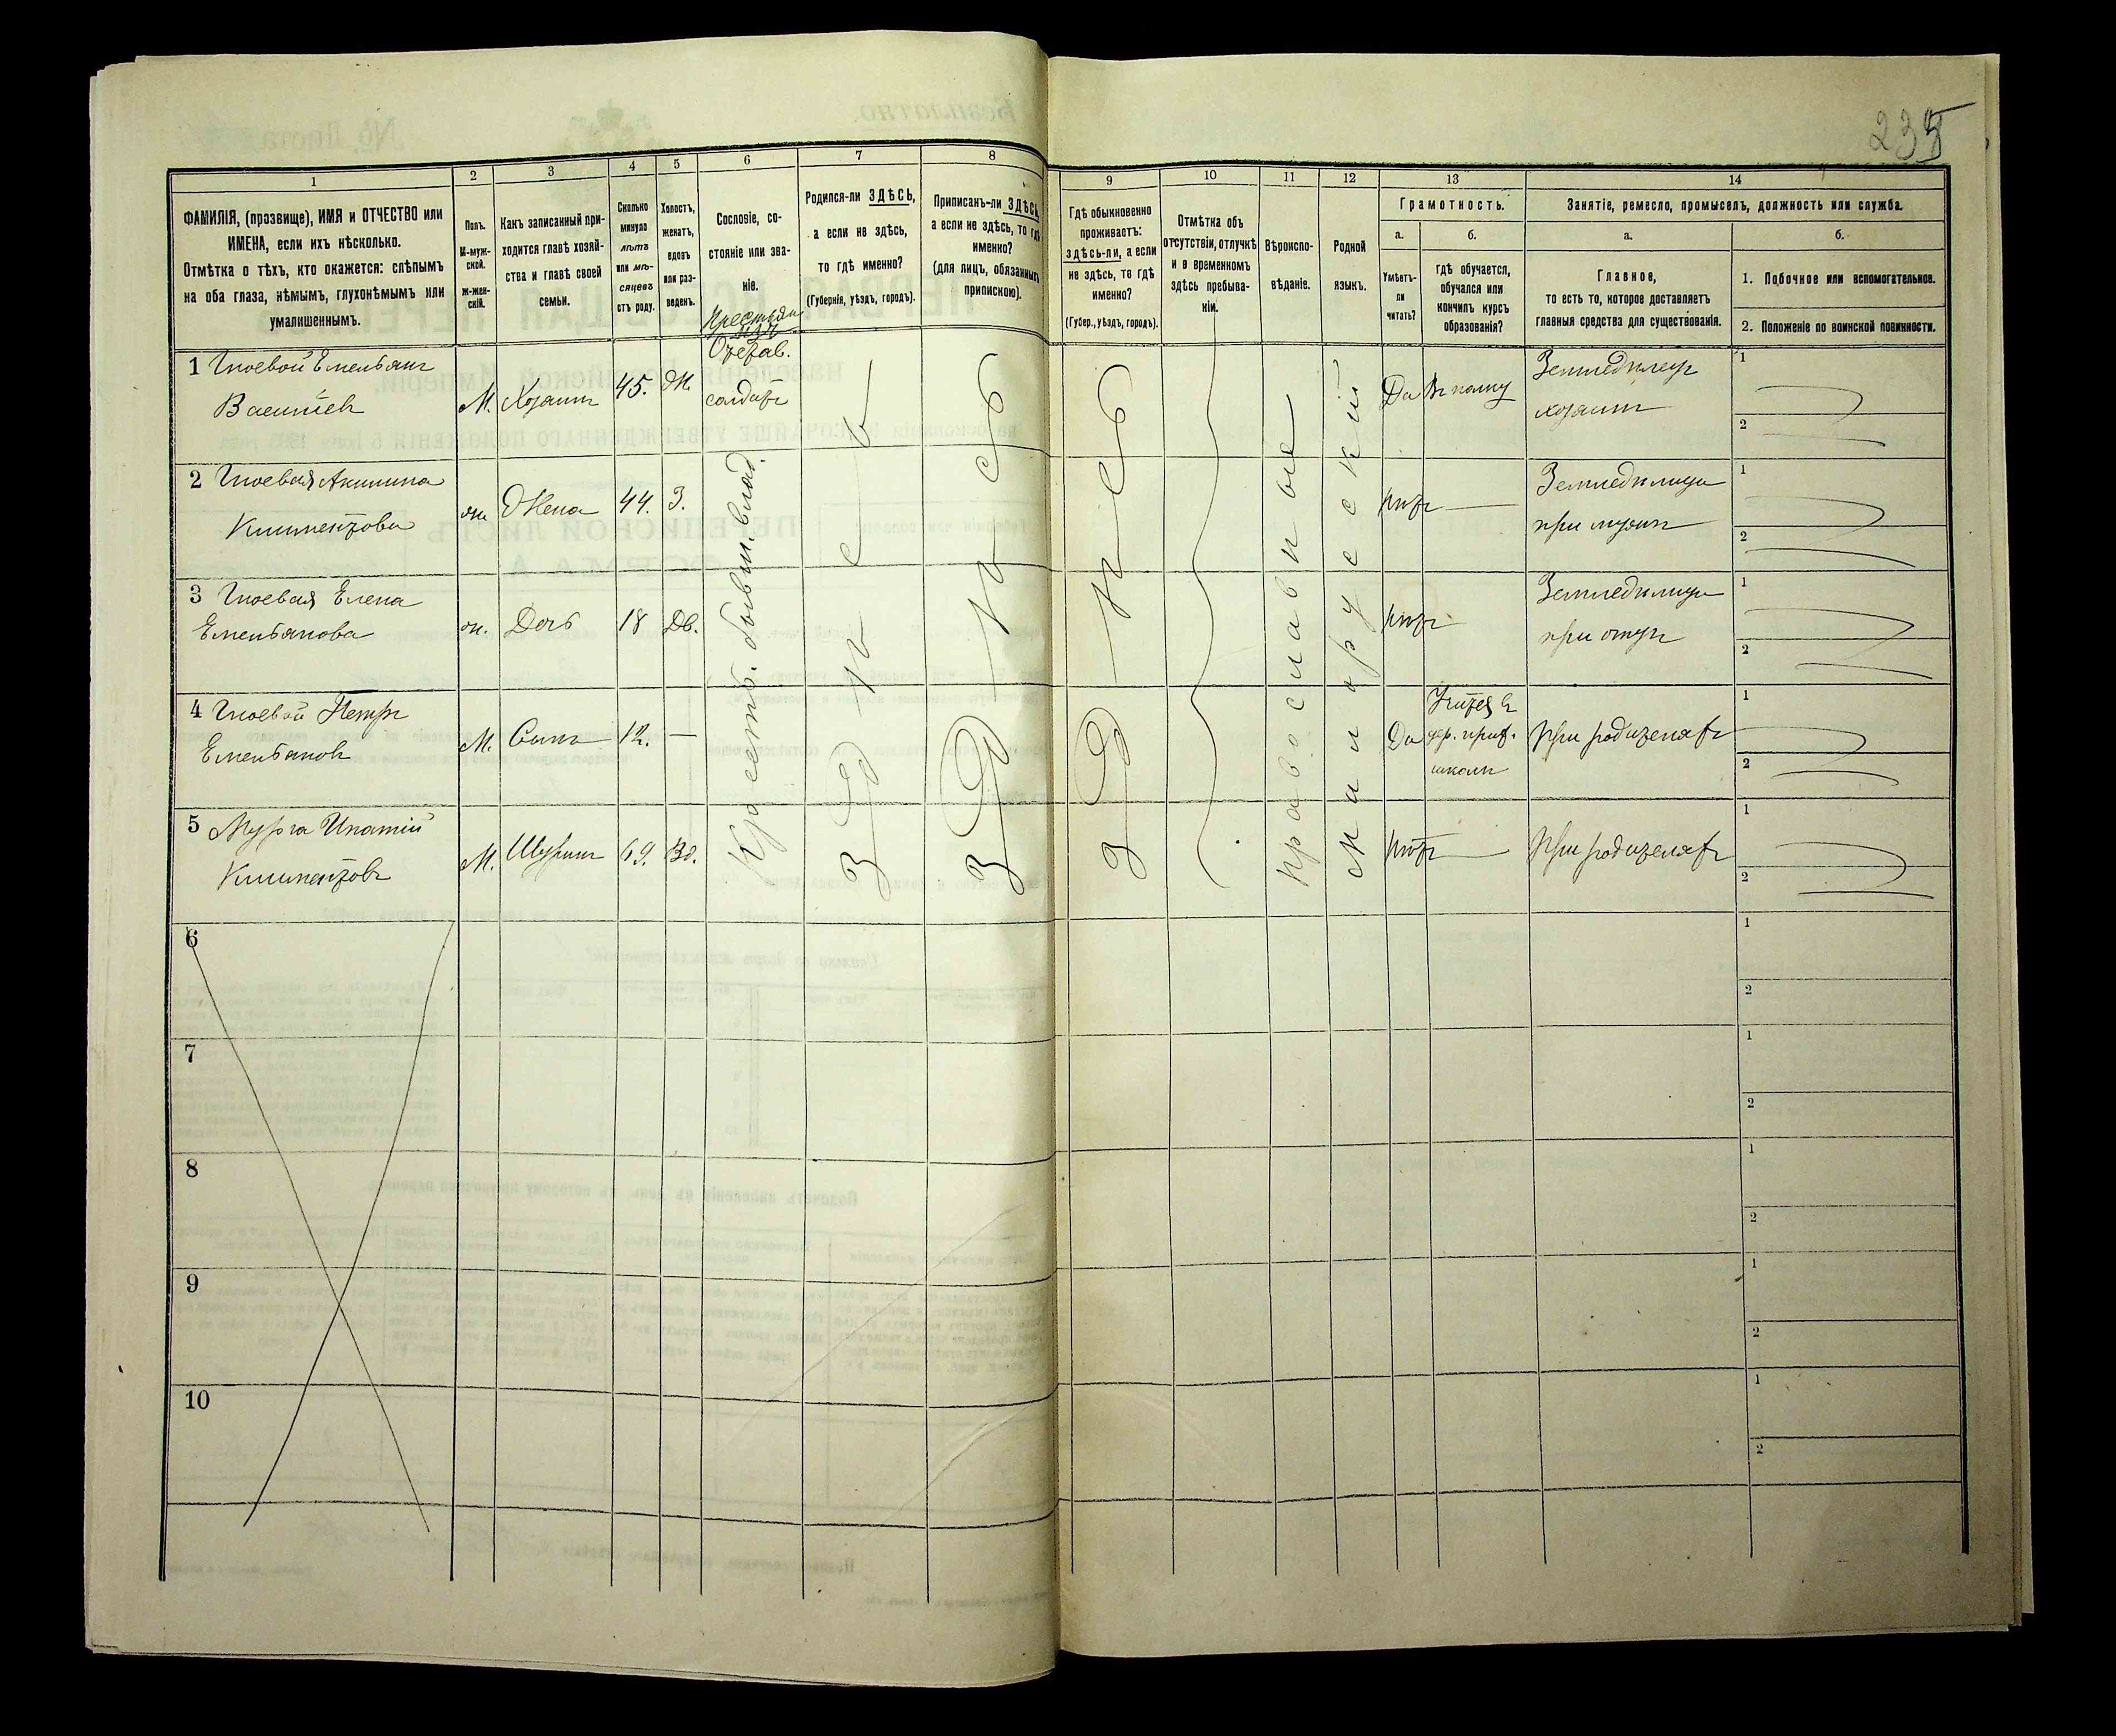 235
1
2
3
4
5
6
7
8
9
10
11
12
13
14
ФАМИЛІЯ, (прозвище), ИМЯ и ОТЧЕСТВО или
ИМЕНА, если ихъ нѣсколько.
Отмѣтка о тѣхъ, кто окажется: слѣпымъ
на оба глаза, нѣмымъ, глухонѣмымъ или
умалишеннымъ.
Полъ.
М-муж-
ской.
ж-жен-
скій.
Какъ записанный при-
ходится главѣ хозяй-
ства и главѣ своей
семьи.
Сколько
минуло
лѣтъ
или мѣ-
сяцевъ
отъ роду.
Холостъ,
женатъ,
вдовъ
или раз-
веденъ.
Сословіе, со-
стояніе или зва-
ніе.
Родился-ли ЗДѢСЬ,
а если не здѣсь,
то гдѣ именно?
(Губернія, уѣздъ, городъ).
Приписанъ-ли ЗДѢСЬ,
а если не здѣсь, то гдѣ
именно?
(для лицъ, обязанныхъ
припискою).
Гдѣ обыкновенно
проживаетъ:
здѣсь-ли, а если
не здѣсь, то гдѣ
именно?
(Губер., уѣздъ, городъ).
Отмѣтка объ
отсутствіи, отлучкѣ
и о временномъ
здѣсь пребыва-
ніи.
Вѣроиспо-
вѣданіе.
Родной
языкъ.
Грамотность.
а.
б.
Умѣетъ-
ли
читать?
гдѣ обучается,
обучался или
кончилъ курсъ
образованія?
Занятіе, ремесло, промыселъ, должность или служба.
а.
б.
Главное,
то есть то, которое доставляетъ
главныя средства для существованія.
1. Побочное или вспомогательное.
2. Положеніе по воинской повинности.
1 Гноевой Емельянъ
Васильевъ
М.
Хозяинъ
45.
Ж.
Отстав.
солдатъ
Да
Въ полку
Земледѣлецъ
хозяинъ
1
2
2 Гноевая Акилина
Климентова
ж.
Жена
44.
З.
нѣтъ
Земледѣлица
при мужѣ
1
2
3 Гноевая Елена
Емельянова
ж.
Дочь
18
Дв.
нѣтъ
Земледѣлица
при отцѣ
1
2
4 Гноевой Петръ
Емельяновъ
М.
Сынъ
12.
Да
Учится въ
школѣ
При родителяхъ
1
2
5 Мурга Ипатій
Климентовъ
М.
Шуринъ
69.
Вд.
нѣтъ
При родителяхъ
1
2
Крестьян. бывш. влад.
Здѣсь
Здѣсь
Здѣсь
Православное
Малорусскій
6
1
2
7
1
2
8
1
2
9
1
2
10
1
2